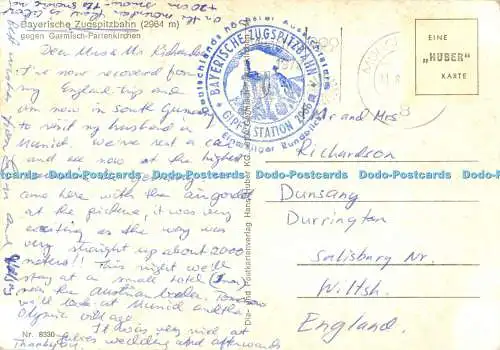 Bayerische Zugspitzbahn (2964 m)
gegen Garmisch-Partenkirchen
Dear Mrs & Mr Richardson
I've now recovered from
my England trip and
am now in South Germany
to visit my husband in
Munich. We've rent a car
and are now at the highest
came here with the
at the picture, it was very
exciting as the way was
very straight up about 2000
meters! This night we'll
stay at a small hotel
near the Austrian border. Tomorrow
we'll look at Munich and the
Olympic village.
It was very nice at
wedding and afterwards
Thank you
Nr. 8330
Best wishes from
and
Deutschlands höchster Aussichtsberg
BAYERISCHE ZUGSPITZBAHN
GIPFELSTATION
Dia- und Postkartenverlag Hans Huber KG
EINE
„HUBER"
KARTE
Mr and Mrs
Richardson
Dunsang
Durrington
Salisbury Nr.
Wiltsh.
England.
Dodo-Postcards Dodo-Postcards Dodo-Postcards Dodo-Postcards